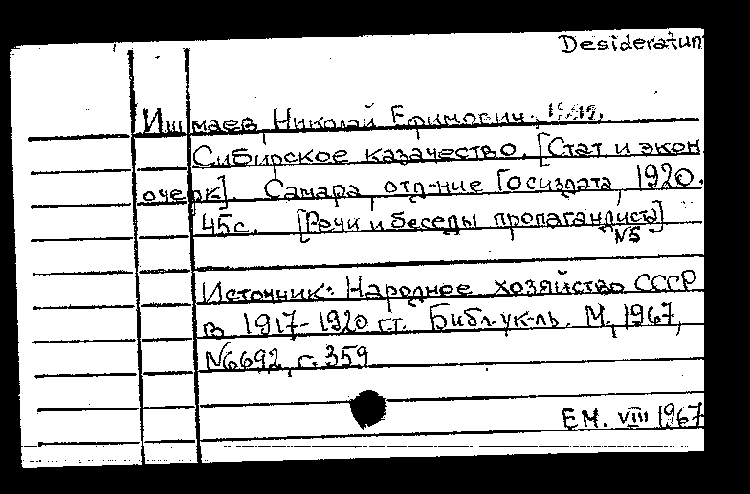 Desideratum
Ишмаев, Николай Ефимович.
Сибирское казачество. [Стат и экон
очерк] Самара, отд-ние Госиздата, 1920.
45с. [Речи и беседы пропагандиста]
N5
Источник: Народное хозяйство СССР
в 1917-1920 гг. Библ. ук-ль. М., 1967,
N6692, с. 359
Е М. VIII 1967